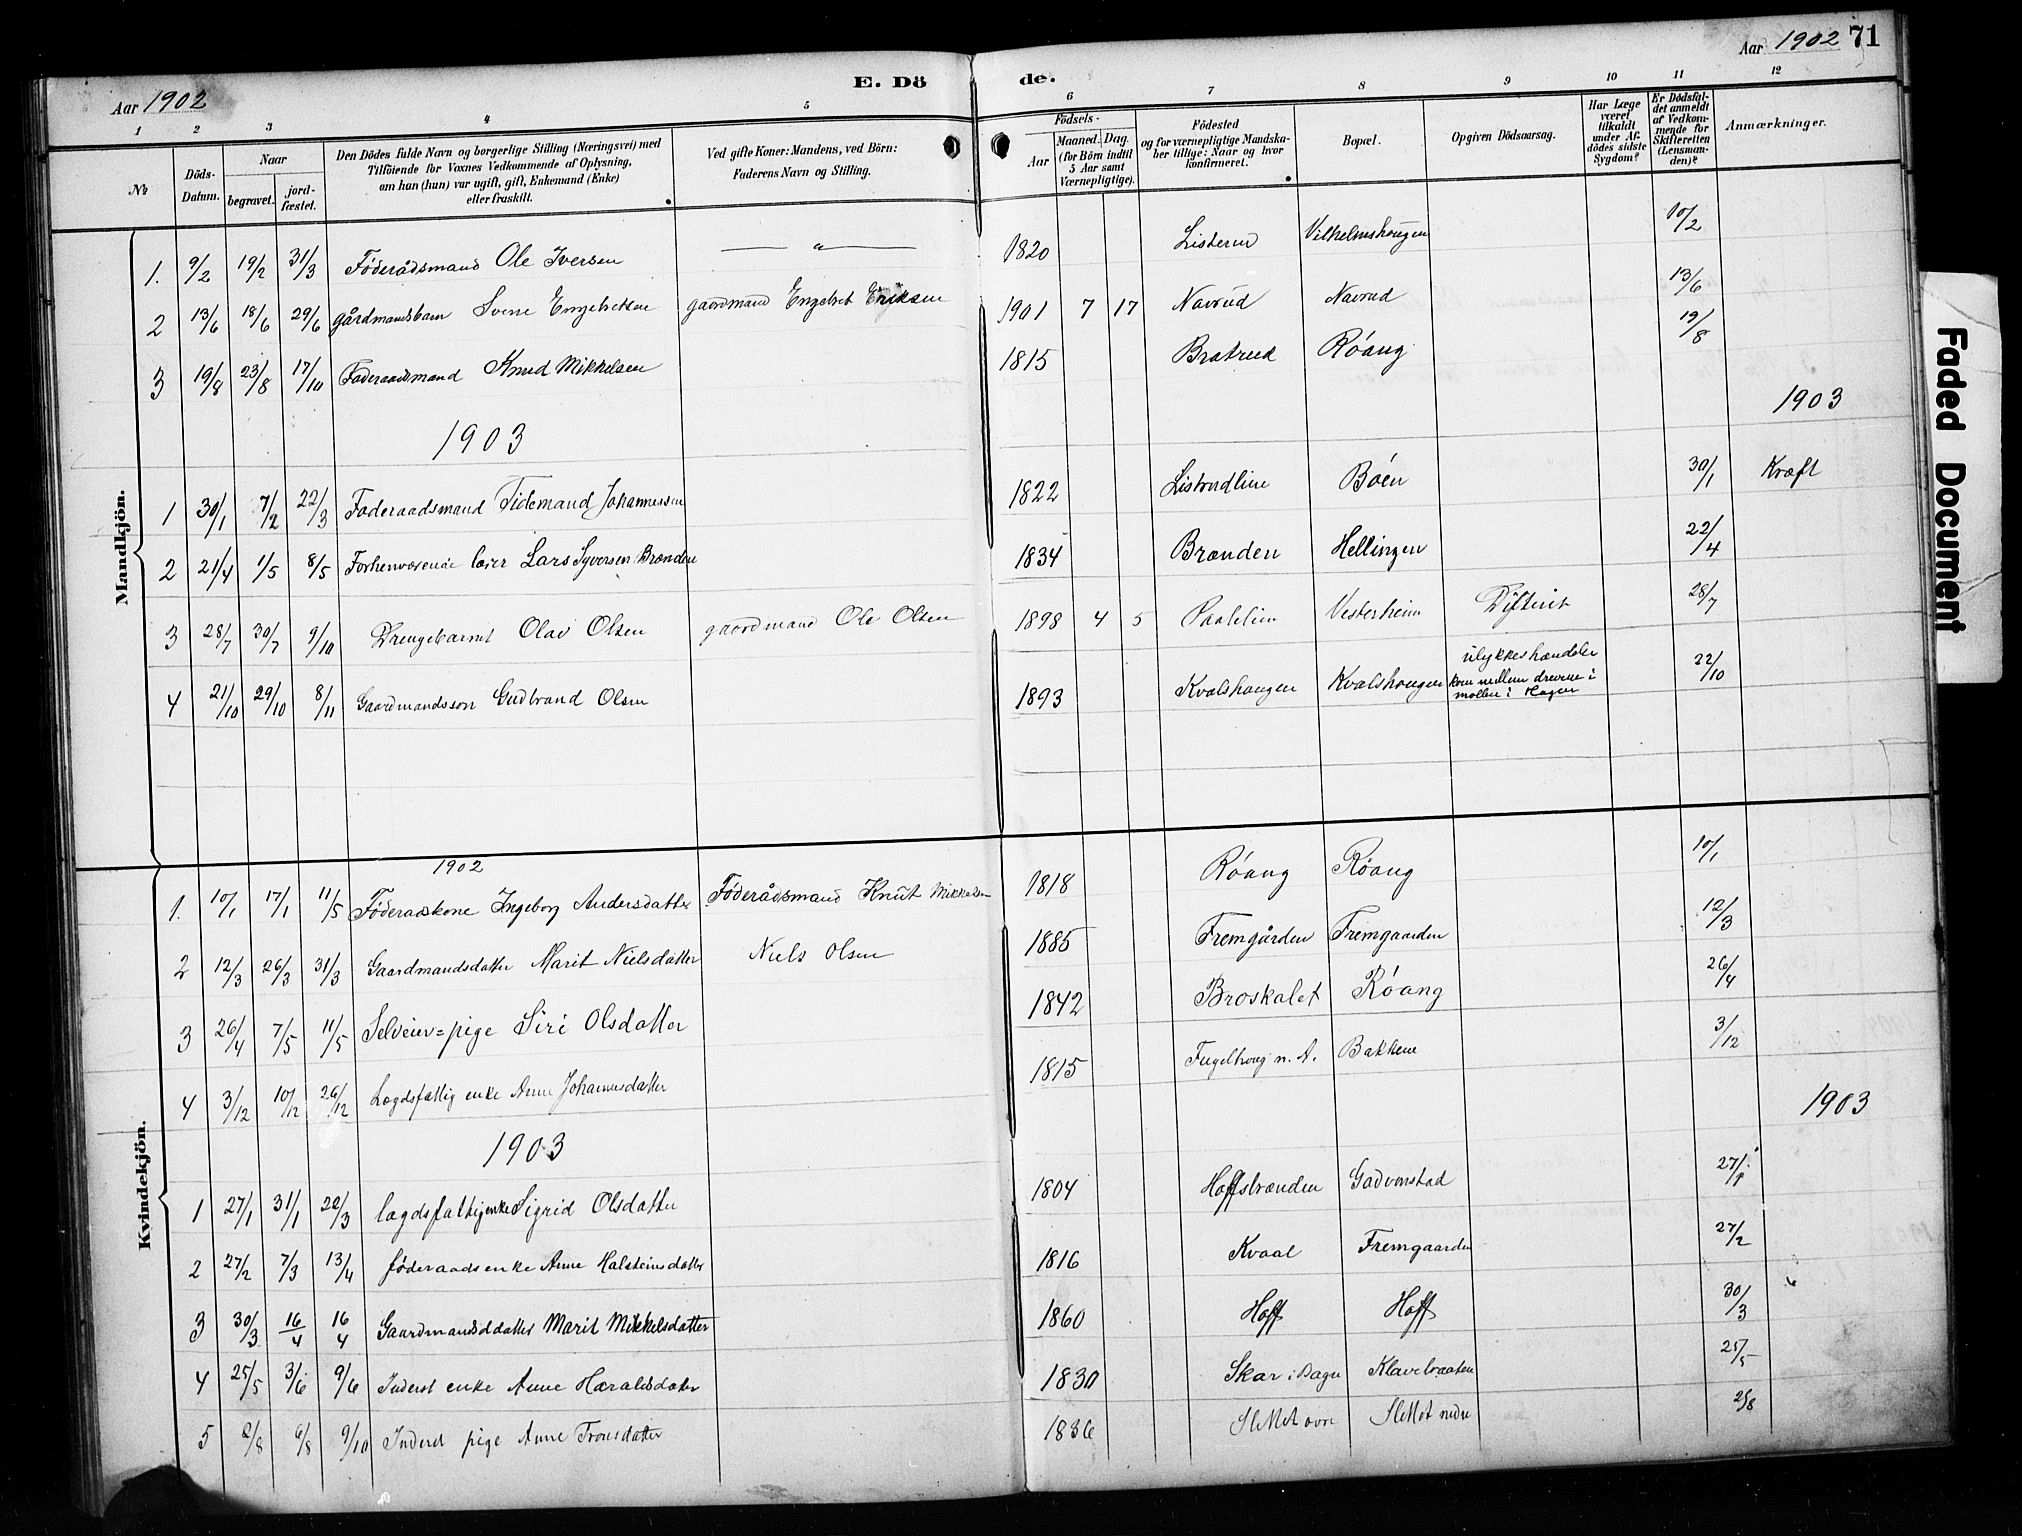 Aar 1902
E. Dö
de.
Aar 1902 71
1 2 3 4 5 6 7 8 9 10 11 12
№
Döds-Datum.
Naar
begravet.
jord-fæstet.
Den Dödes fulde Navn og borgerlige Stilling (Næringsvei) med
Tilföiende for Voxnes Vedkommende af Oplysning,
om han (hun) var ugift, gift, Enkemand (Enke)
eller fraskilt.
Ved gifte Koner: Mandens, ved Börn:
Faderens Navn og Stilling.
Födsels-
Aar
Maaned. Dag.
(for Börn indtil
5 Aar samt
Værnepligtige).
Födested
og for værnepligtige Mandska-
ber tillige: Naar og hvor
konfirmeret.
Bopæl.
Opgiven Dödsaarsag.
Har Læge
været
tilkaldt
under Af-
dödes sidste
Sygdom?
Er Dödsfal-
det anmeldt
af Vedkom-
mende for
Skifteretten
(Lensman-
den)?
Anmærkninger.
Mandkjön.
1. 9/2 19/2 31/3 Føderådsmand Ole Iversen — " — 1820 Listerud Vilhelmshaugen 10/2
2 13/6 18/6 29/6 gårdmandsbarn Svene Engebretsen gaardmand Engebret Eriksen 1901 7 17 Navrud Navrud 13/6
3 19/8 23/8 17/10 Føderaadsmand Knud Mikkelsen 1815 Bratrud Røang 19/8
1903
1903
1 30/1 7/2 22/3 Føderaadsmand Tidemand Johannessen 1822 Listrudlien Bøen 30/1 Kræft
2 21/4 1/5 8/5 Forhenværende lærer Lars Syversen Brænden 1834 Brænden Hellingen 22/4
3 28/7 30/7 9/10 Drengebarnet Olav Olsen gaardmand Ole Olsen 1898 4 5 Paalelien Vesterheim Difterit 28/7
4 21/10 29/10 8/11 Gaardmandssøn Gudbrand Olsen 1893 Kvalshaugen Kvalshaugen ulykkeshændelse
kom mellem drevene i
møllen i Hagen 22/10
Kvindekjön.
1902
1. 10/1 17/1 11/5 Føderaadskone Ingeborg Andersdatter Føderådsmand Knut Mikkelsen 1818 Røang Røang 10/1
2 12/3 26/3 31/3 Gaardmandsdatter Marit Nielsdatter Niels Olsen 1885 Fremgården Fremgaarden 12/3
3 26/4 7/5 11/5 Selveier=pige Siri Olsdatter 1842 Broskalet Røang 26/4
4 3/12 10/12 26/12 Lægdsfattig enke Anne Johannesdatter 1815 Fuglehaug n. A. Bakkene 3/12
1903
1903
1 27/1 31/1 22/3 lægdsfattig enke Sigrid Olsdatter 1804 Hoffsbrænden Gadvenstad 27/1
2 27/2 7/3 13/4 føderaadsenke Anne Halsteinsdatter 1816 Kvaal Fremgaarden 27/2
3 30/3 16/4 16/4 Gaardmandsdatter Marit Mikkelsdatter 1860 Hoff Hoff 30/3
4 25/5 3/6 9/6 Inderst enke Anne Haraldsdatter 1830 Skar i Bagn Klavebraaten 25/5
5 2/8 6/8 9/10 Inderst pige Anne Tronsdatter 1836 Slettet øvre Slettet nedre 2/8
Faded Document